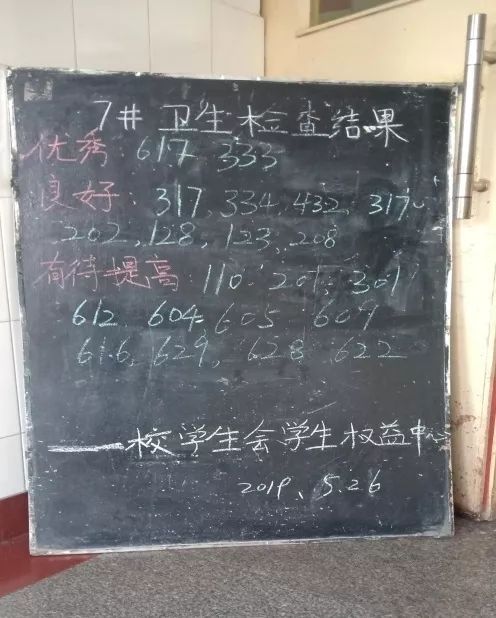 7# 卫生检查结果
优秀: 617 333
良好: 317, 334, 432, 317
202, 128, 123, 208
有待提高: 110 201 301
612 604 605 609
616, 629, 628 622
——校学生会学生权益中心
2019、5.26